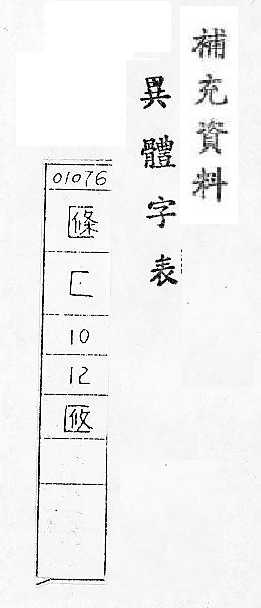 補充資料
異體字表
01076
匚
10
12